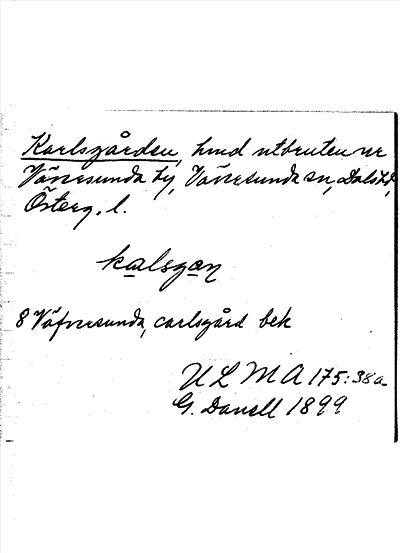 Karlsgården, hmd utbruten ur
Väversunda by, Väversunda sn, Dals hd,
Österg. l.
kalsgan
8 Väfversunda, carlsgård bek
ULMA 175:38a
G. Danell 1899